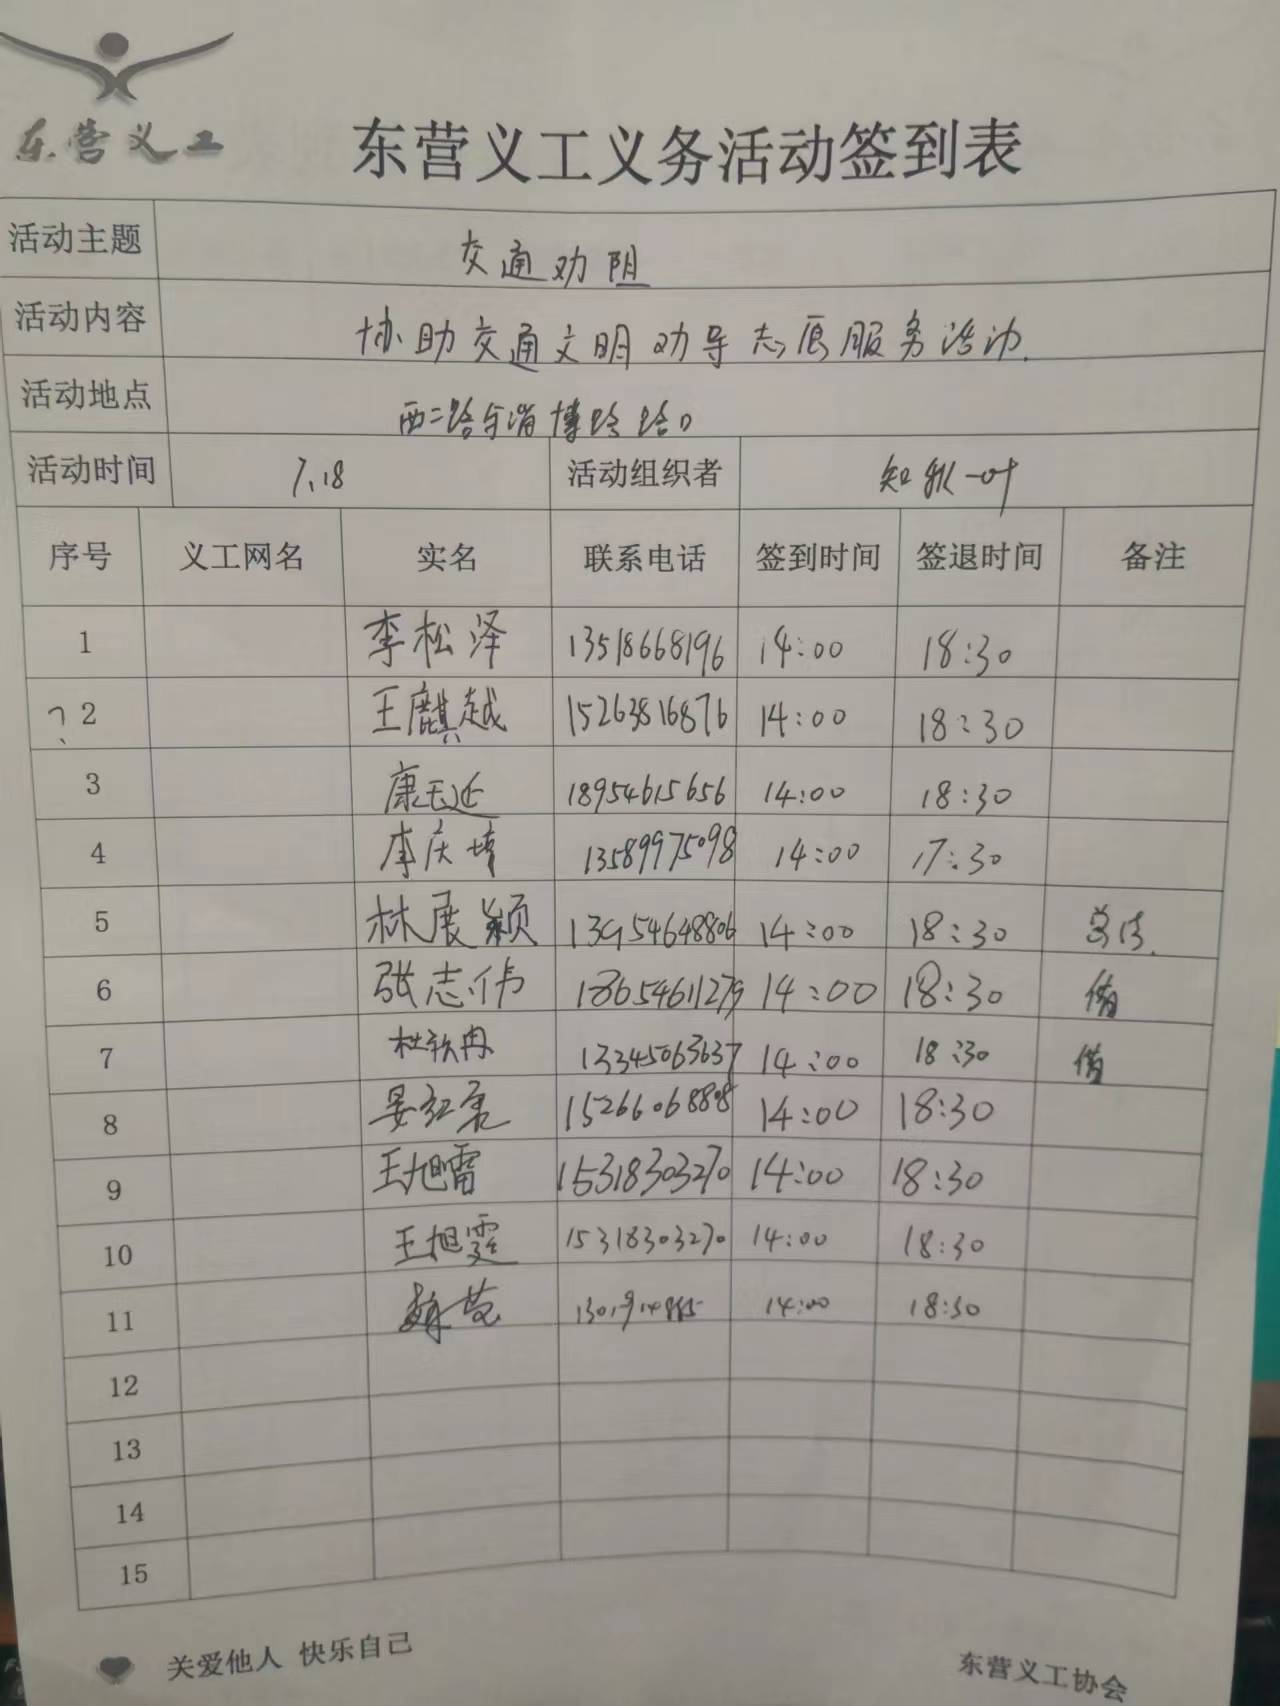 东营义工
东营义工义务活动签到表
活动主题 交通劝阻
活动内容 协助交通文明劝导志愿服务活动.
活动地点 西二路与淄博路路口
活动时间 7.18 活动组织者 知秋一叶
序号 义工网名 实名 联系电话 签到时间 签退时间 备注
1 李松泽 13518668196 14:00 18:30
2 王麒越 15263816876 14:00 18:30
3 康玉延 18954615656 14:00 18:30
4 李庆 13589975098 14:00 17:30
5 林展颖 13954648806 14:00 18:30
6 张志伟 18654611279 14:00 18:30
7 杜钦冉 13345063637 14:00 18:30
8 晏红 15266068808 14:00 18:30
9 王旭雷 15318303270 14:00 18:30
10 王旭霆 15318303270 14:00 18:30
11 14:00 18:30
12
13
14
15
关爱他人 快乐自己
东营义工协会